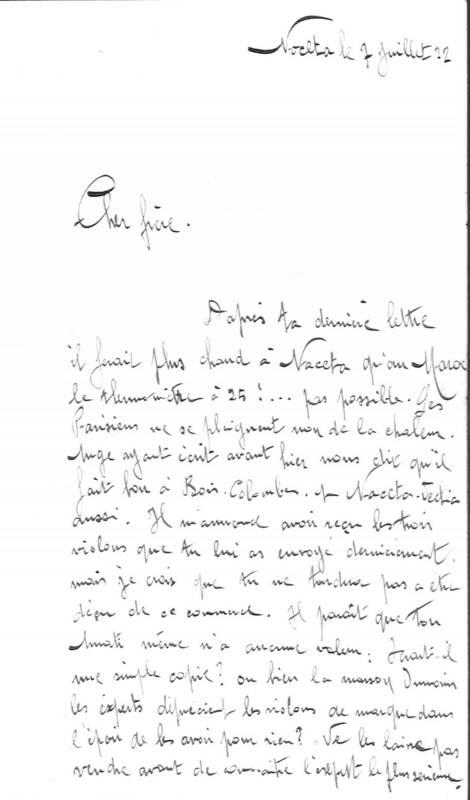 Noceta le 7 Juillet 22
Cher frère.
D'après ta dernière lettre
il ferait plus chaud à Noceta qu'au Maroc
le thermomètre à 25 !... pas possible. Les
Parisiens ne se plaignent non de la chaleur.
Ange ayant écrit avant hier nous dit qu'il
fait bon à Bois-Colombes.
aussi. Il m'annonce avoir reçu les trois
violons que tu lui as envoyé dernièrement,
mais je crois que tu ne tardera pas a être
déçu de ce commerce. Il paraît que ton
Amati même n'a aucune valeur : Serait-il
une simple copie ? ou bien la maison
les experts déprécient les violons de marque dans
l'espoir de les avoir pour rien ? Ne les laisse pas
vendre avant de connaître l'expert le plus sérieux